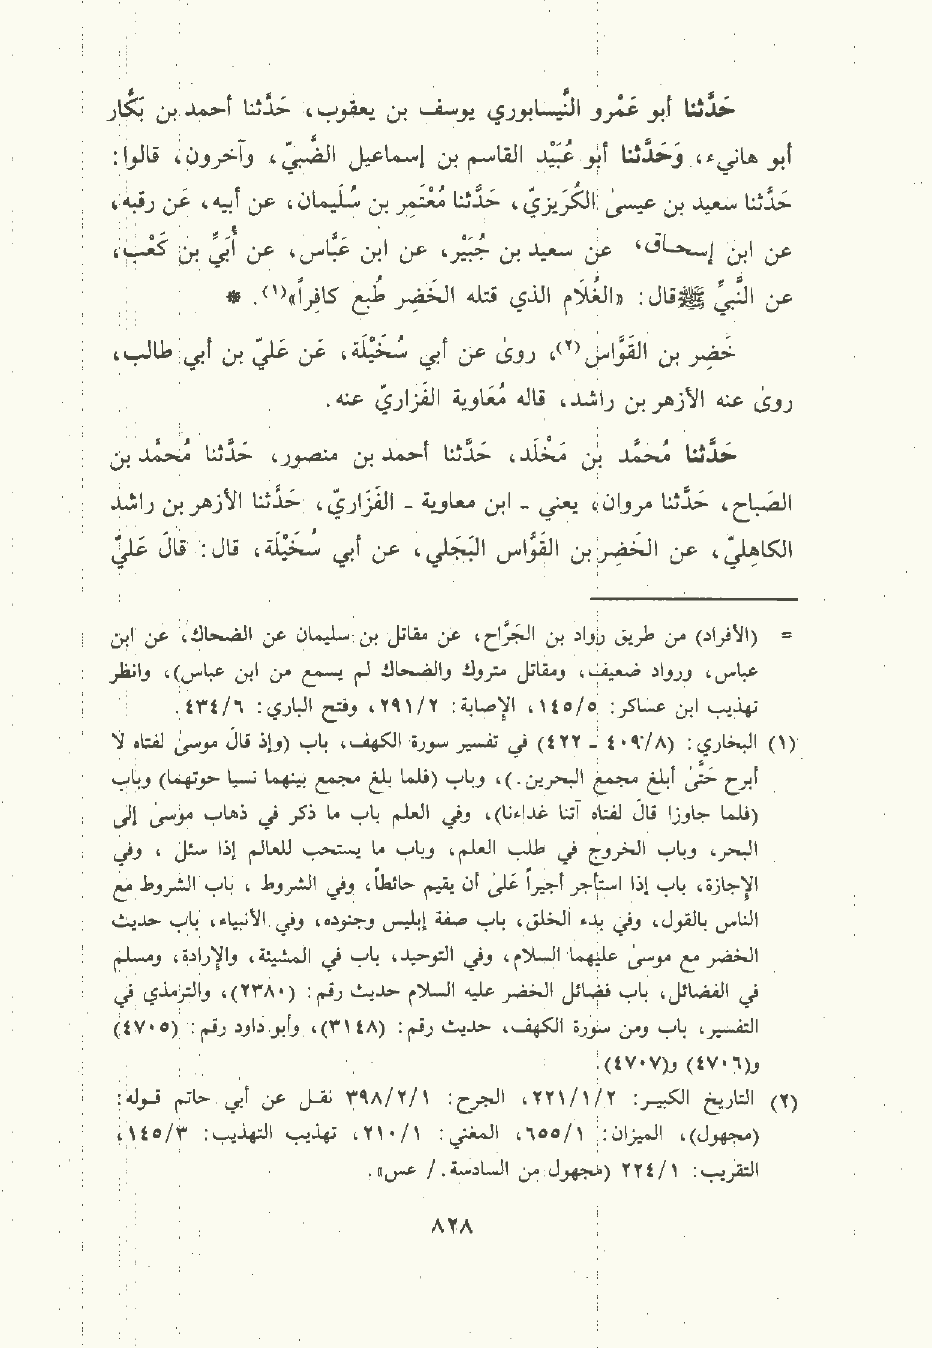 حَدَّثنا أبو عَمْرو النَّيسابوري يوسف بن يعقوب، حَدَّثنا أحمد بن بَكَّار
أبو هانيء، وَحَدَّثنا أبو عُبَيْد القاسم بن إسماعيل الضَّبيّ، وآخرون، قالوا:
حَدَّثنا سعيد بن عيسىٰ الكُرَيزيّ، حَدَّثنا مُعْتَمِر بن سُلَيمان، عن أبيه، عَن رقبه،
عن ابن إسحاق، عن سعيد بن جُبَيْر، عن ابن عَبَّاس، عن أُبَيِّ بن كَعْب،
عن النَّبيِّ ﷺ قال: «الغُلَام الذي قتله الخَضِر طُبع كافِراً»(١). *
خَضِر بن القَوَّاس(٢)، روىٰ عن أبي سُخَيْلَة، عَن عَليّ بن أبي طالب،
روىٰ عنه الأزهر بن راشد، قاله مُعَاوية الفَزاريّ عنه.
حَدَّثنا مُحمَّد بن مَخْلَد، حَدَّثنا أحمد بن منصور، حَدَّثنا مُحمَّد بن
الصَباح، حَدَّثنا مروان، يعني - ابن معاوية - الفَزَاريّ، حَدَّثنا الأزهر بن راشد
الكاهِليّ، عن الخَضِر بن القَوَّاس البَجَلي، عن أبي سُخَيْلَة، قال: قَالَ عَليّ
= (الأفراد) من طريق رواد بن الجَرَّاح، عن مقاتل بن سليمان عن الضحاك، عن ابن
عباس، ورواد ضعيف، ومقاتل متروك والضحاك لم يسمع من ابن عباس)، وانظر
تهذيب ابن عساكر: ١٤٥/٥، الإصابة: ٢٩١/٢، وفتح الباري: ٤٣٤/٦.
(١) البخاري: (٤٠٩/٨ - ٤٢٢) في تفسير سورة الكهف، باب (وإذ قَالَ موسىٰ لفتاه لا
أبرح حَتَّىٰ أبلغ مجمع البحرين.)، وباب (فلما بلغ مجمع بينهما نسيا حوتهما) وباب
(فلما جاوزا قَالَ لفتاه آتنا غداءنا)، وفي العلم باب ما ذكر في ذهاب موسىٰ إلى
البحر، وباب الخروج في طلب العلم، وباب ما يستحب للعالم إذا سئل ، وفي
الإجازة، باب إذا استأجر أجيراً عَلىٰ أن يقيم حائطاً، وفي الشروط ، باب الشروط مع
الناس بالقول، وفي بدء الخلق، باب صفة إبليس وجنوده، وفي الأنبياء، باب حديث
الخضر مع موسىٰ عليهما السلام، وفي التوحيد، باب في المشيئة، والإرادة، ومسلم
في الفضائل، باب فضائل الخضر عليه السلام حديث رقم: (٢٣٨٠)، والترمذي في
التفسير، باب ومن سورة الكهف، حديث رقم: (٣١٤٨)، وأبو داود رقم: (٤٧٠٥)
و(٤٧٠٦) و(٤٧٠٧).
(٢) التاريخ الكبيـر: ٢٢١/١/٢، الجرح: ٣٩٨/٢/١ نقـل عن أبي حاتم قـوله:
(مجهول)، الميزان: ٦٥٥/١، المغني: ٢١٠/١، تهذيب التهذيب: ١٤٥/٣،
التقريب: ٢٢٤/١ (مجهول من السادسة. / عس».
٨٢٨